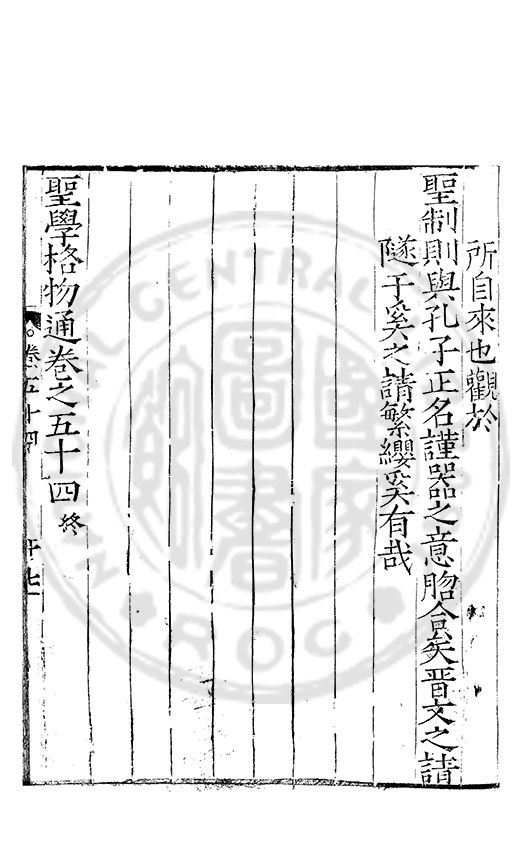 所自來也觀於
聖制則與孔子正名謹器之意脗合矣晉文之請
隧于奚之請繁纓奚有哉
聖學格物通卷之五十四 終
卷五十四
CENTRAL
ROC